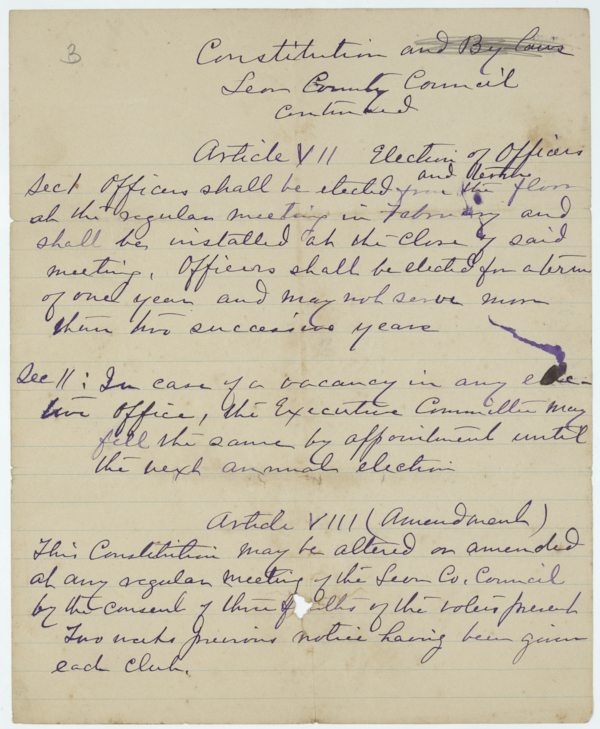 3
Constitution and By laws
Leon County Council
continued
Article VII Election of Officers
and
Sec 1 Officers shall be elected from the floor
at the regular meeting in February and
shall be installed at the close of said
meeting. Officers shall be elected for a term
of one year and may not serve more
than two successive years
Sec II : In case of a vacancy in any elec-
tive office, the Executive Committee may
fill the same by appointment until
the next annual election
Article VIII (Amendment)
This Constitution may be altered or amended
at any regular meeting of the Leon Co. Council
by the consent of three of the voters present
Two weeks previous notice having been given
each club.